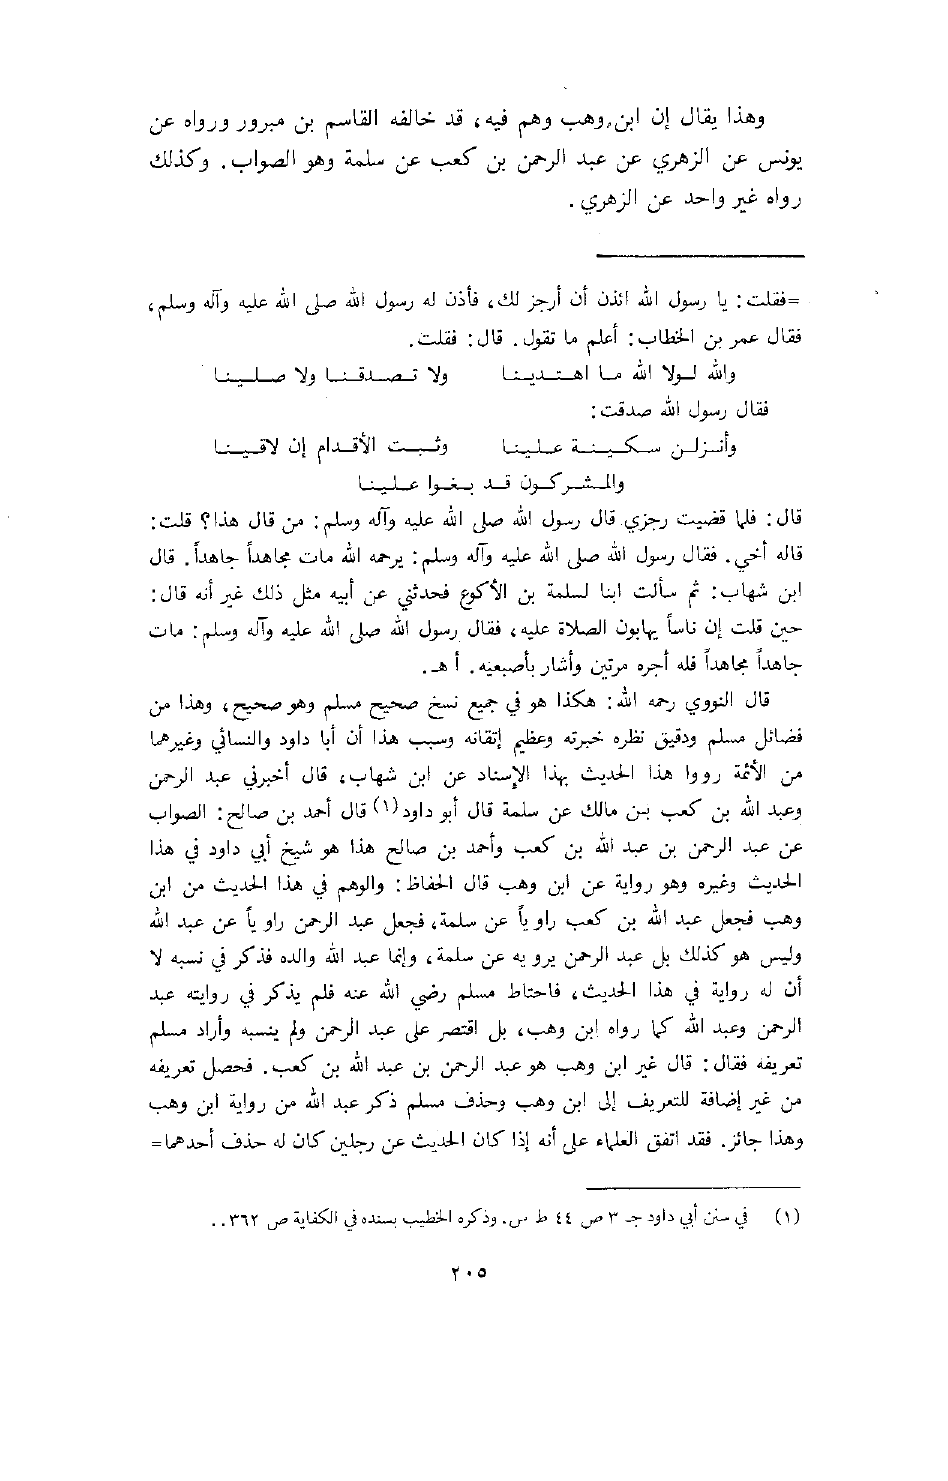 وهذا يقال إن ابن وهب وهم فيه، قد خالفه القاسم بن مبرور ورواه عن
يونس عن الزهري عن عبد الرحمن بن كعب عن سلمة وهو الصواب. وكذلك
رواه غير واحد عن الزهري.
=فقلت: يا رسول الله ائذن أن أرجز لك، فأذن له رسول الله صلى الله عليه وآله وسلم،
فقال عمر بن الخطاب: أعلم ما تقول. قال: فقلت.
والله لـولا الله مـا اهـتـديـنـا ولا تـصـدقـنـا ولا صـلـيـنـا
فقال رسول الله صدقت:
وأنـزلـن سـكـيـنـة عـلـيـنـا وثـبـت الأقـدام إن لاقـيـنـا
والمـشـركـون قـد بـغـوا عـلـيـنـا
قال: فلما قضيت رجزي قال رسول الله صلى الله عليه وآله وسلم: من قال هذا؟ قلت:
قاله أخي. فقال رسول الله صلى الله عليه وآله وسلم: يرحمه الله مات مجاهداً جاهداً. قال
ابن شهاب: ثم سألت ابنا لسلمة بن الأكوع فحدثني عن أبيه مثل ذلك غير أنه قال:
حين قلت إن ناساً يهابون الصلاة عليه، فقال رسول الله صلى الله عليه وآله وسلم: مات
جاهداً مجاهداً فله أجره مرتين وأشار بأصبعيه. أ هـ.
قال النووي رحمه الله: هكذا هو في جميع نسخ صحيح مسلم وهو صحيح، وهذا من
فضائل مسلم ودقيق نظره خبرته وعظيم إتقانه وسبب هذا أن أبا داود والنسائي وغيرهما
من الأئمة رووا هذا الحديث بهذا الإسناد عن ابن شهاب، قال أخبرني عبد الرحمن
وعبد الله بن كعب بـن مالك عن سلمة قال أبو داود(١) قال أحمد بن صالح: الصواب
عن عبد الرحمن بن عبد الله بن كعب وأحمد بن صالح هذا هو شيخ أبي داود في هذا
الحديث وغيره وهو رواية عن ابن وهب قال الحفاظ: والوهم في هذا الحديث من ابن
وهب فجعل عبد الله بن كعب راوياً عن سلمة، فجعل عبد الرحمن راوياً عن عبد الله
وليس هو كذلك بل عبد الرحمن يرويه عن سلمة، وإنما عبد الله والده فذكر في نسبه لا
أن له رواية في هذا الحديث، فاحتاط مسلم رضي الله عنه فلم يذكر في روايته عبد
الرحمن وعبد الله كما رواه ابن وهب، بل اقتصر على عبد الرحمن ولم ينسبه وأراد مسلم
تعريفه فقال: قال غير ابن وهب هو عبد الرحمن بن عبد الله بن كعب. فحصل تعريفه
من غير إضافة للتعريف إلى ابن وهب وحذف مسلم ذكر عبد الله من رواية ابن وهب
وهذا جائز. فقد اتفق العلماء على أنه إذا كان الحديث عن رجلين كان له حذف أحدهما=
(١) في سنن أبي داود جـ ٣ ص ٤٤ ط س. وذكره الخطيب بسنده في الكفاية ص ٣٦٢..
٢٠٥